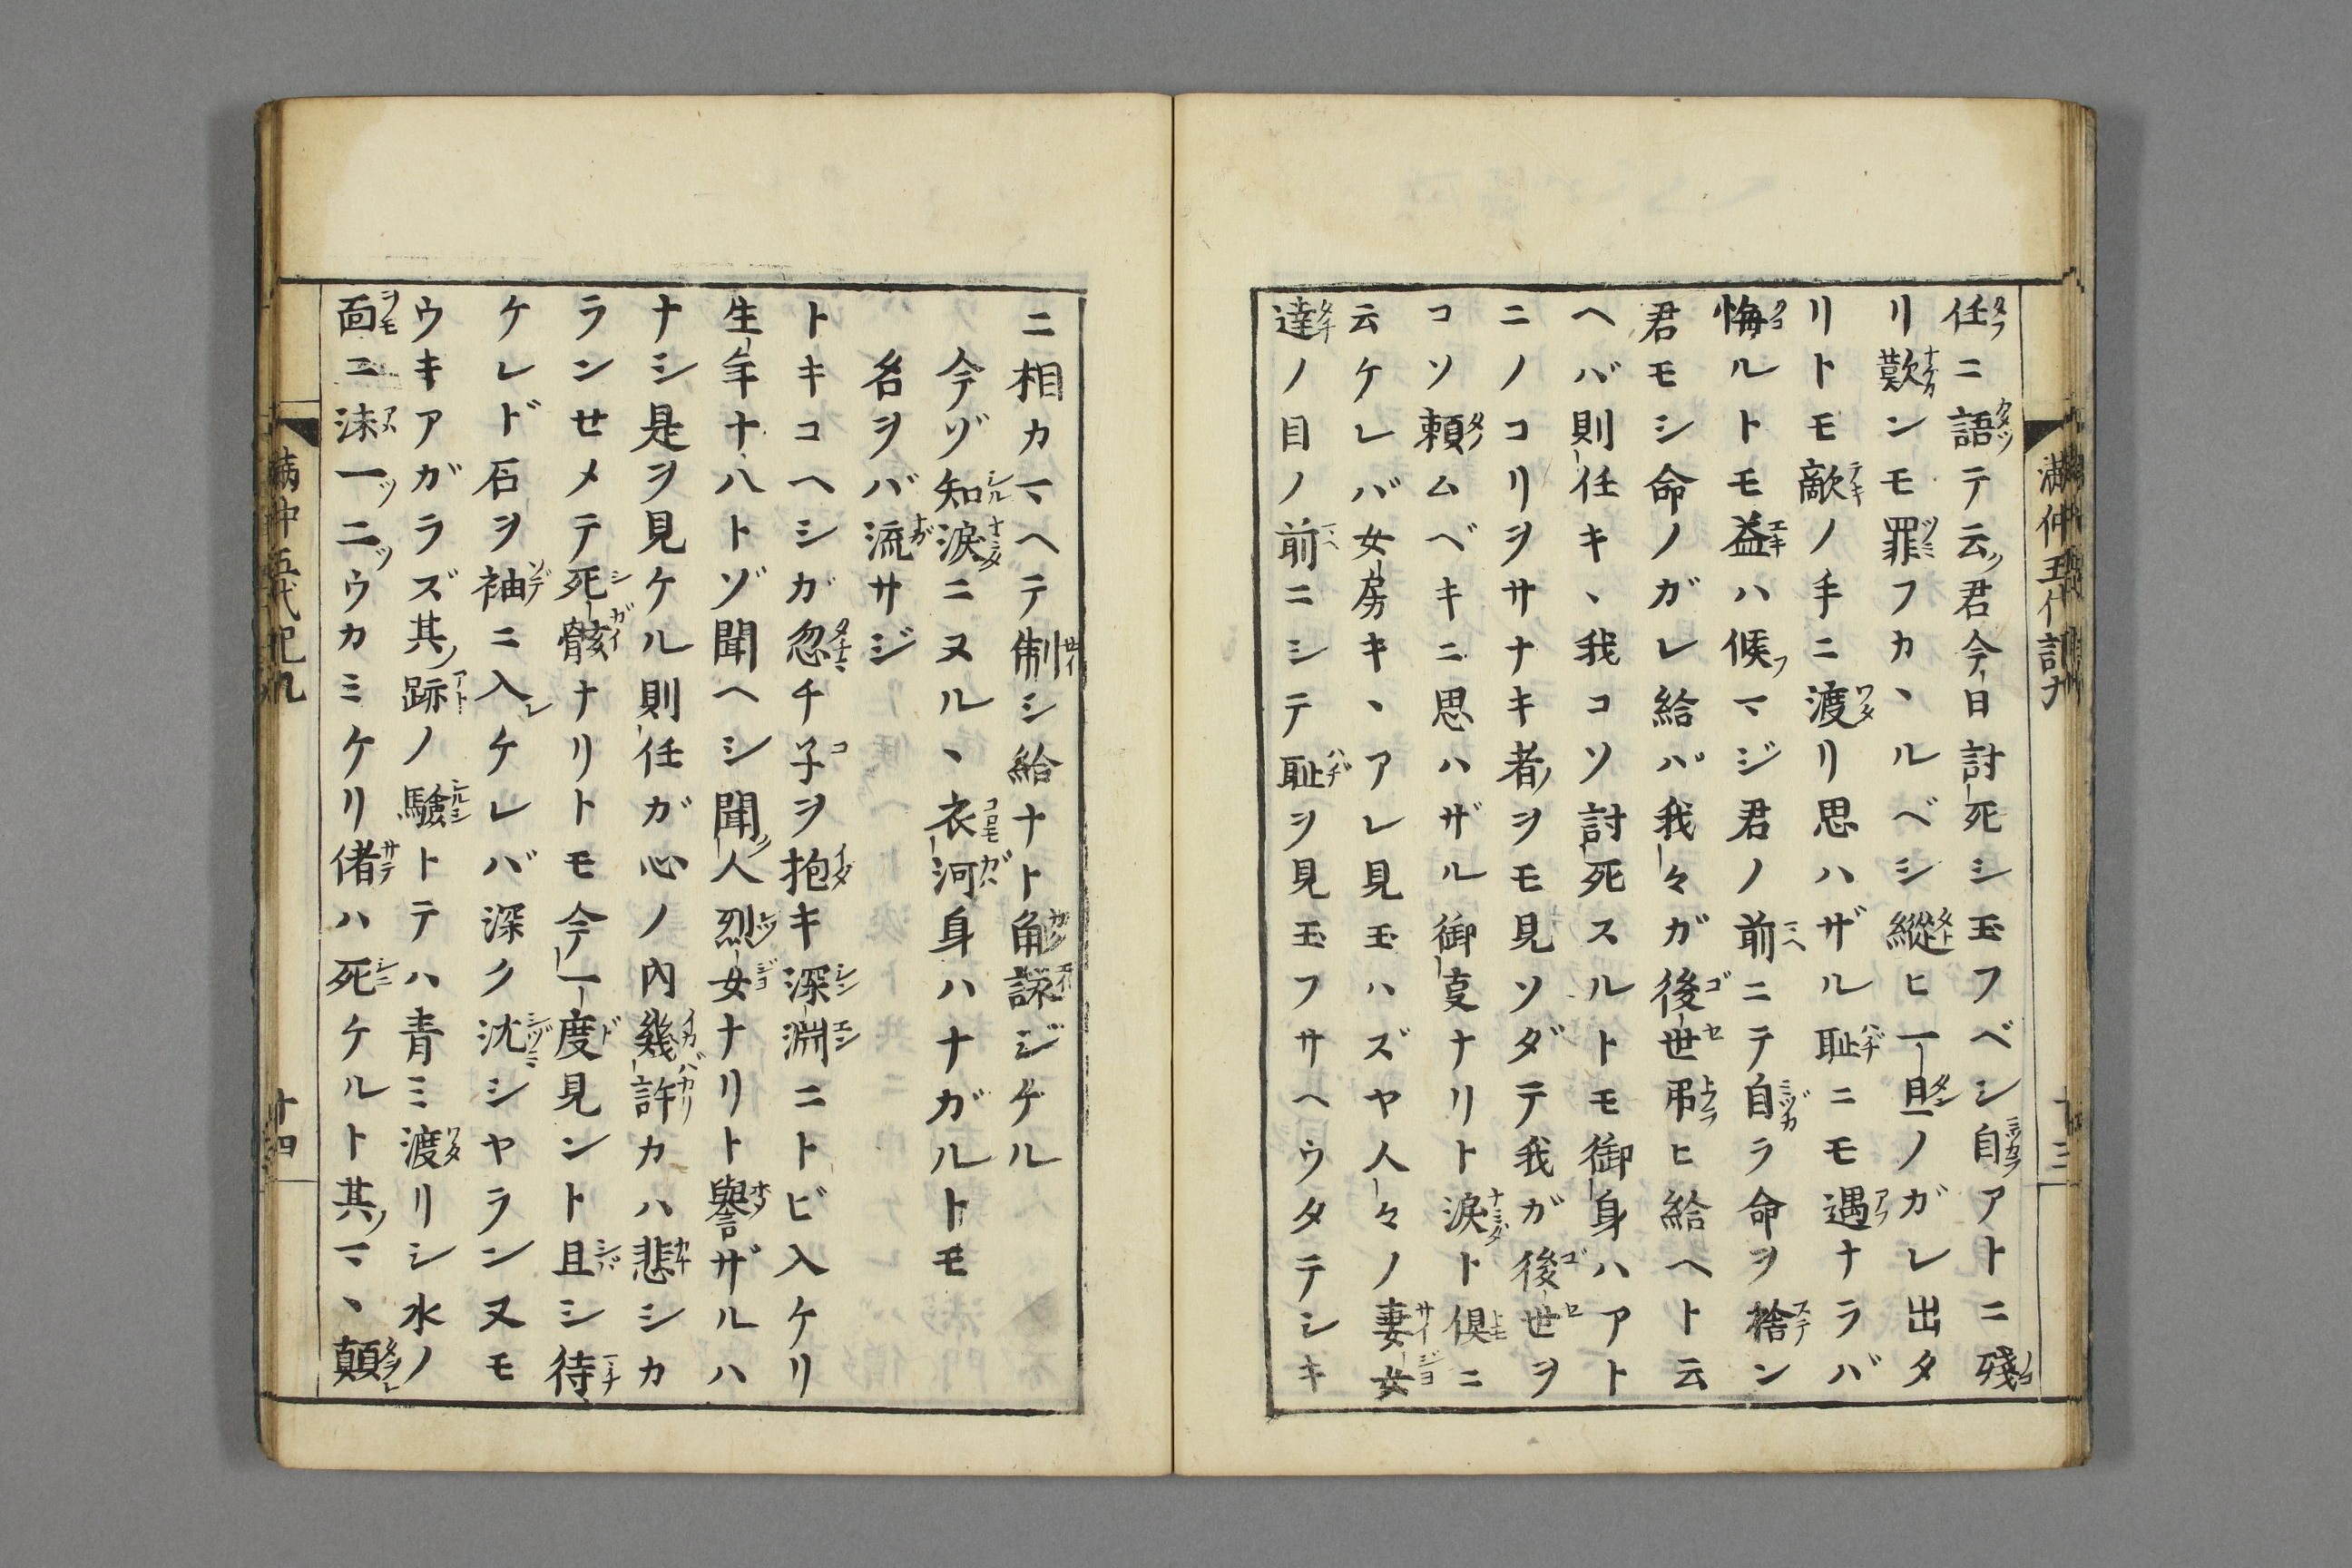 任ニ語テ云ク君今日討死シ玉フベシ自アトニ殘
リ歎ンモ罪フカヽルベシ縱ヒ一旦ノガレ出タ
リトモ敵ノ手ニ渡リ思ハザル耻ニモ遇ナラバ
悔ルトモ益ハ候マジ君ノ前ニテ自ラ命ヲ捨ン
君モシ命ノガレ給ハバ我々ガ後世弔ヒ給ヘト云
ヘバ則任キヽ我コソ討死スルトモ御身ハアト
ニノコリヲサナキ者ヲモ見ソダテ我ガ後世ヲ
コソ頼ムベキニ思ハザル御㕝ナリト涙ト倶ニ
云ケレバ女房キヽアレ見玉ハズヤ人々ノ妻女
達ノ目ノ前ニシテ耻ヲ見玉フサヘウタテシキ
満仲五代記九
十三
ニ相カマヘテ制シ給ナト角詠ジケル
今ゾ知涙ニヌルヽ衣河身ハナガルトモ
名ヲバ流サジ
トキコヘシガ忽チ子ヲ抱キ深淵ニトビ入ケリ
生年十八トゾ聞ヘシ聞人烈女ナリト譽ザルハ
ナシ是ヲ見ケル則任ガ心ノ内幾許カハ悲シカ
ランせメテ死骸ナリトモ今一度見ント且シ待
ケレド石ヲ袖ニ入ケレバ深ク沈シヤラン又モ
ウキアガラズ其跡ノ驗トテハ青ミ渡リシ水ノ
面ニ沫一ツ二ツウカミケリ偖ハ死ケルト其マヽ顛
満仲五代記九
十四